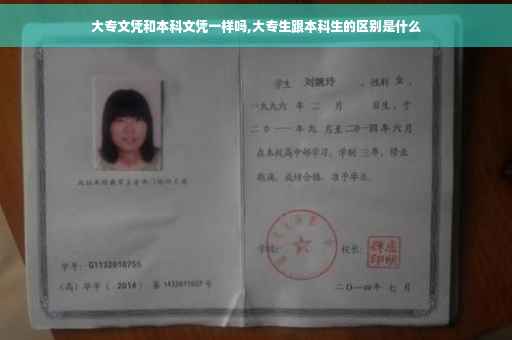 大专文凭和本科文凭一样吗,大专生跟本科生的区别是什么
学生 刘婉玲 ,性别 女 ,
一九九六 年 二 月 日生,于
二〇一一 年 九 月至 二〇一四 年 六 月
在本校高中部学习,学制 三 年,修业
期满,成绩合格,准予毕业。
学号: G1132010755
校长:
(高)毕字( 2014 )第 1432011027 号
二〇一四年 七 月